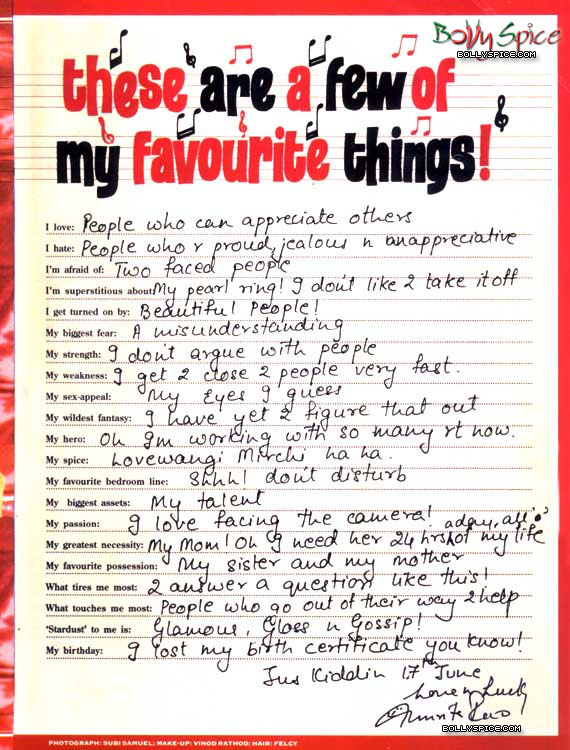 Bolly Spice
BOLLYSPICE.COM
these are a few of
my favourite things!
I love: People who can appreciate others
I hate: People who r proud, jealous n anappreciative
I'm afraid of: Two faced people
I'm superstitious about: My pearl ring! I don't like 2 take it off
I get turned on by: Beautiful People!
My biggest fear: A misunderstanding
My strength: I don't argue with people
My weakness: I get 2 close 2 people very fast.
My sex-appeal: My Eyes I guess
My wildest fantasy: I have yet 2 figure that out
My hero: Oh I'm working with so many rt now.
My spice: Lovewangi Mirchi ha ha.
My favourite bedroom line: Shhh! don't disturb
My biggest assets: My talent
My passion: I love facing the camera!
My greatest necessity: My Mom! Oh I need her 24 hrs a day, all of my life
My favourite possession: My sister and my mother
What tires me most: 2 answer a question like this!
What touches me most: People who go out of their way 2 help
'Stardust' to me is: Glamour, Gloss n Gossip!
My birthday: I lost my birth certificate you know!
Jus Kiddin 17th June
BOLLYSPICE.COM
PHOTOGRAPH: SUBI SAMUEL; MAKE-UP: VINOD RATHOD; HAIR: FELCY